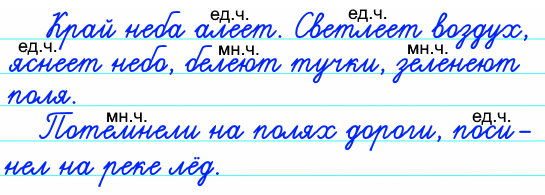 ед.ч. ед.ч.
Край неба алеет. Светлеет воздух,
ед.ч. мн.ч. мн.ч.
яснеет небо, белеют тучки, зеленеют
поля.
мн.ч. ед.ч.
Потемнели на полях дороги, поси-
нел на реке лёд.